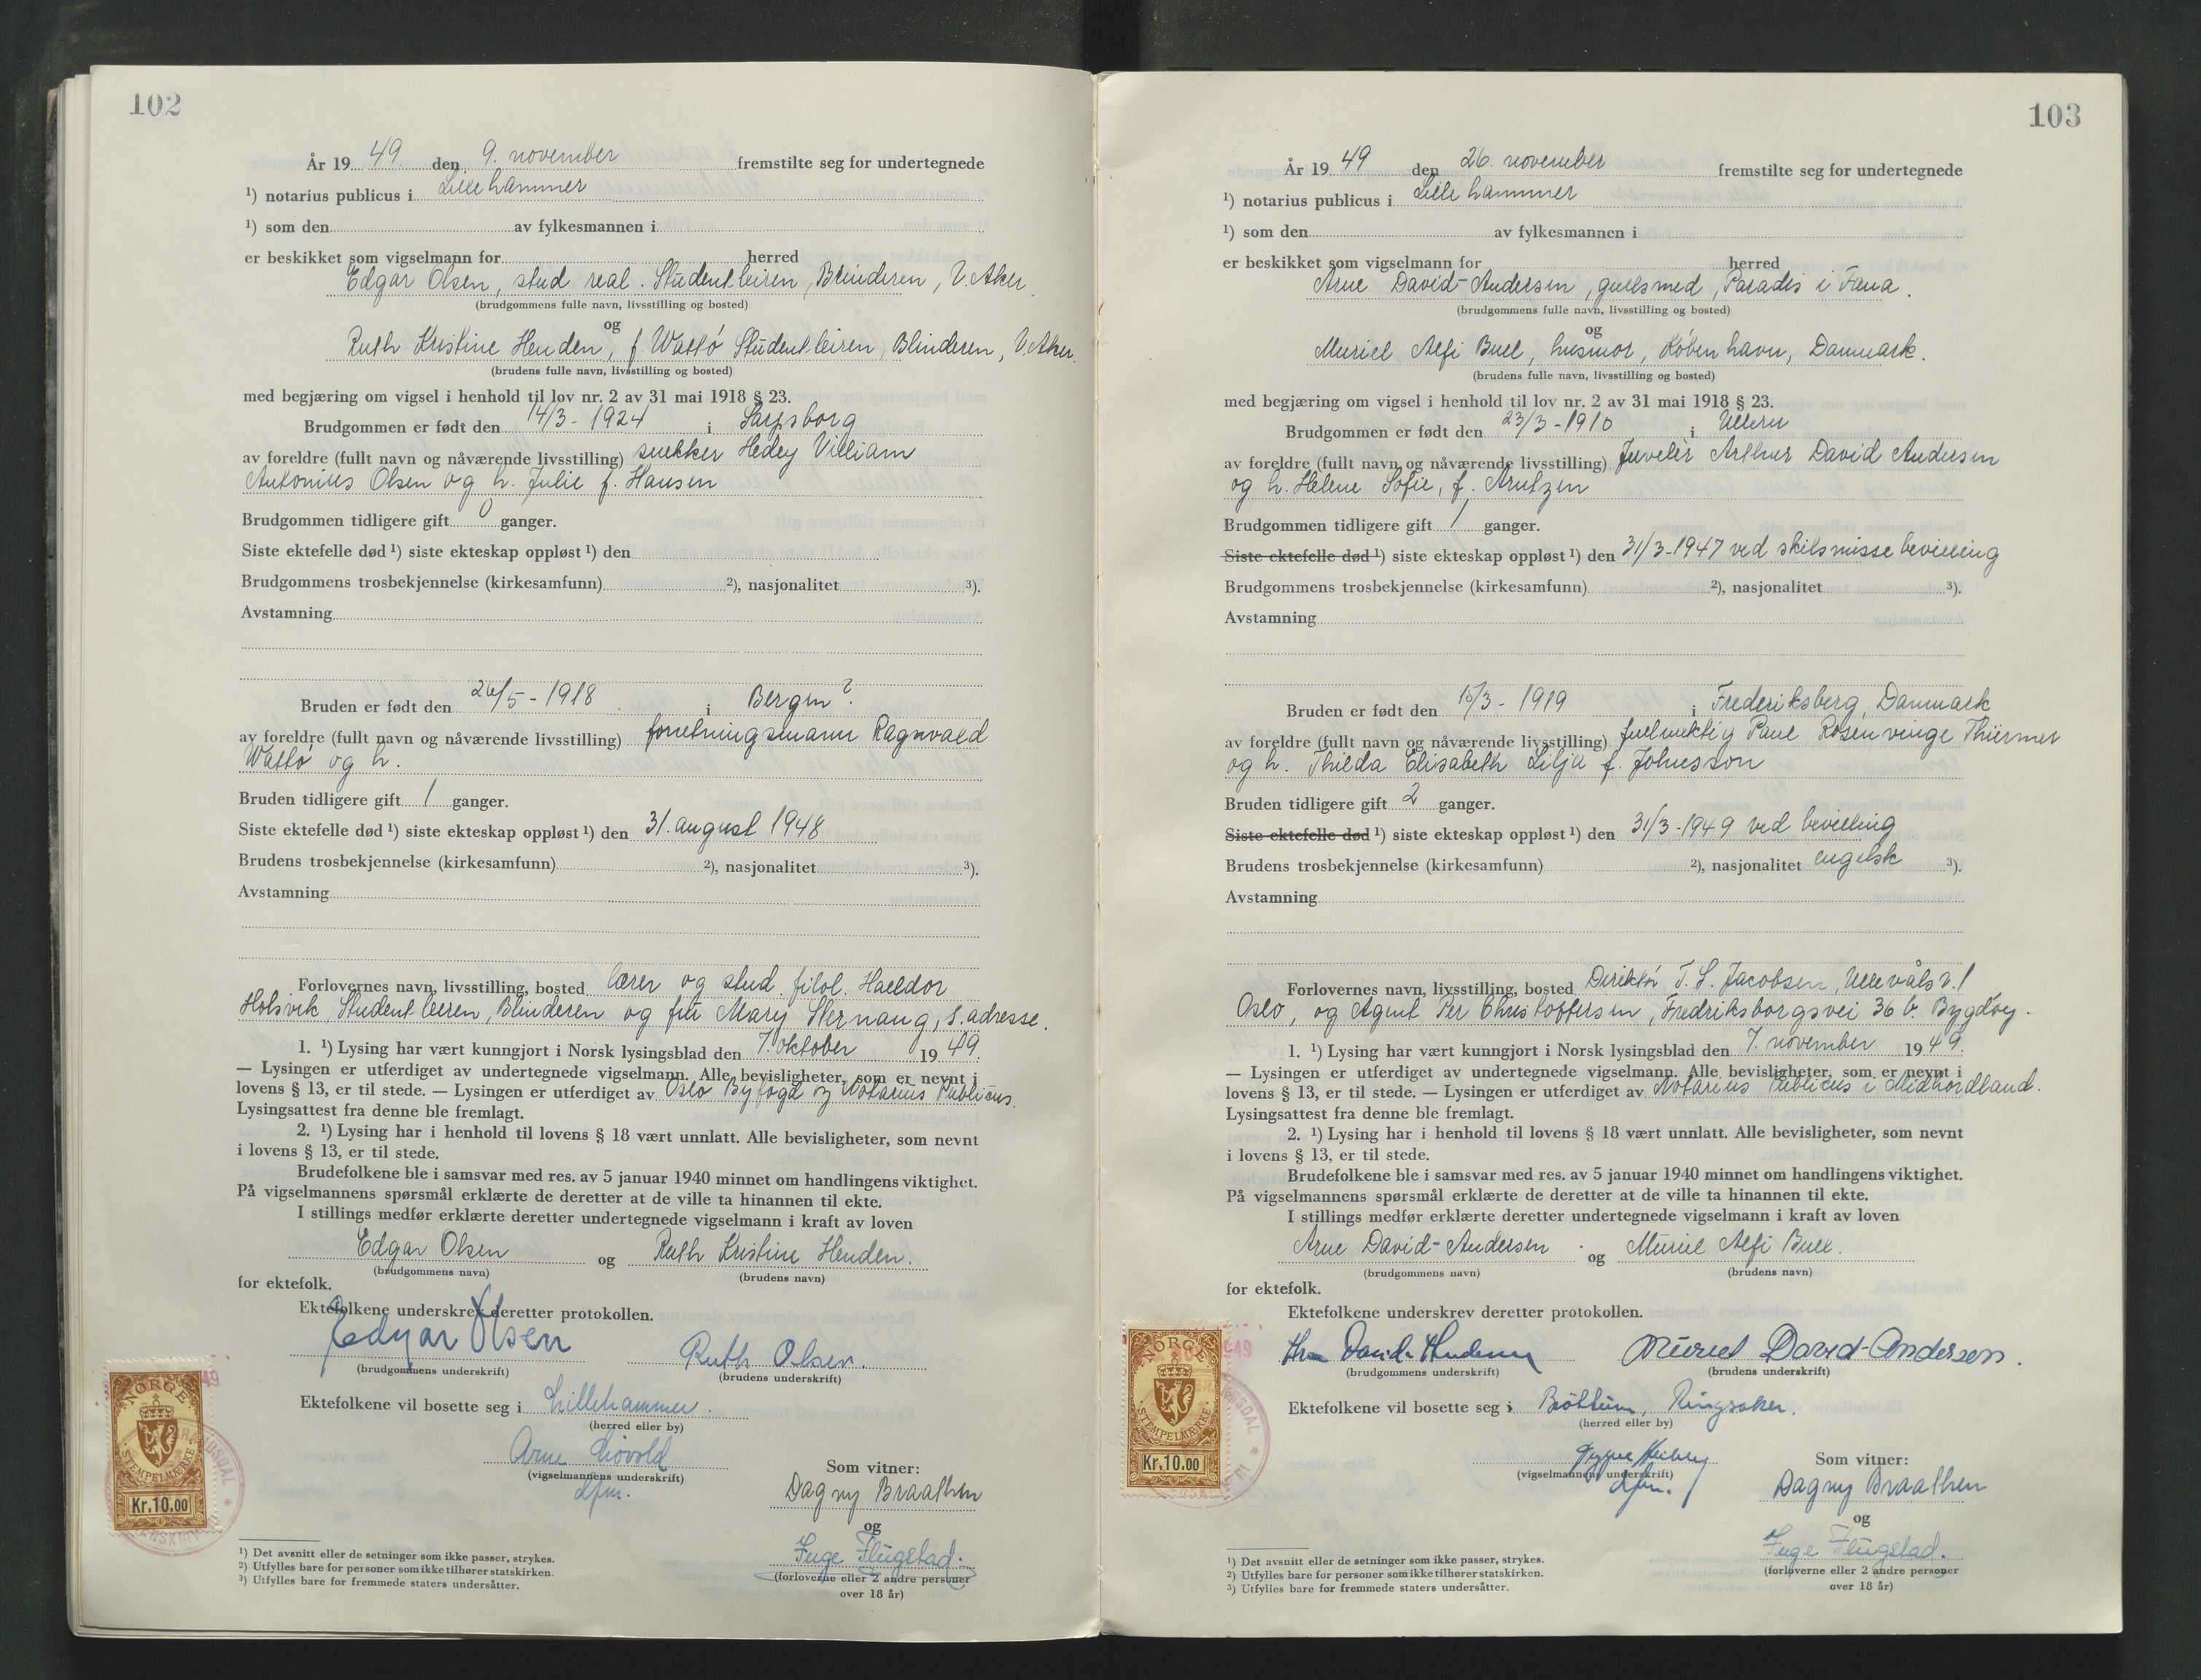 102
År 19 49. den 9. november fremstilte seg for undertegnede
¹) notarius publicus i Lillehammer
¹) som den av fylkesmannen i
er beskikket som vigselmann for herred
Edgar Olsen, stud real. Studentleiren, Blinderen, V. Aker.
(brudgommens fulle navn, livsstilling og bosted)
og
Ruth Kristine Henden, f. Wattó Studentleiren, Blinderen, V. Aker.
(brudens fulle navn, livsstilling og bosted)
med begjæring om vigsel i henhold til lov nr. 2 av 31 mai 1918 § 23.
Brudgommen er født den 14/3 - 1924 i Sarpsborg
av foreldre (fullt navn og nåværende livsstilling) snekker Hedley Villiam
Antonius Olsen og h. Julie f. Hansen
Brudgommen tidligere gift 0 ganger.
Siste ektefelle død ¹) siste ekteskap oppløst ¹) den
Brudgommens trosbekjennelse (kirkesamfunn) ²), nasjonalitet ³).
Avstamning
Bruden er født den 26/5 - 1918 i Bergen ?
av foreldre (fullt navn og nåværende livsstilling) forretningsmann Ragnvald
Wattó og h.
Bruden tidligere gift 1 ganger.
Siste ektefelle død ¹) siste ekteskap oppløst ¹) den 31. august 1948
Brudens trosbekjennelse (kirkesamfunn) ²), nasjonalitet ³).
Avstamning
Forlovernes navn, livsstilling, bosted lærer og stud. filol. Halldor
Holsvik, Studentleiren, Blinderen og frk. Mary Sternang, s. adresse.
1. ¹) Lysing har vært kunngjort i Norsk lysingsblad den 7. oktober 19 49.
— Lysingen er utferdiget av undertegnede vigselmann. Alle bevisligheter, som er nevnt i
lovens § 13, er til stede. — Lysingen er utferdiget av Oslo Byfogd og Notarius Publicus.
Lysingsattest fra denne ble fremlagt.
2. ¹) Lysing har i henhold til lovens § 18 vært unnlatt. Alle bevisligheter, som nevnt
i lovens § 13, er til stede.
Brudefolkene ble i samsvar med res. av 5 januar 1940 minnet om handlingens viktighet.
På vigselmannens spørsmål erklærte de deretter at de ville ta hinannen til ekte.
I stillings medfør erklærte deretter undertegnede vigselmann i kraft av loven
Edgar Olsen og Ruth Kristine Henden.
(brudgommens navn) (brudens navn)
for ektefolk.
Ektefolkene underskrev deretter protokollen.
Edgar Olsen Ruth Olsen.
(brudgommens underskrift) (brudens underskrift)
Ektefolkene vil bosette seg i Lillehammer.
(herred eller by)
Arne Liovold
(vigselmannens underskrift)
dfm.
Som vitner:
Dagny Braathen
og
Inge Flugstad.
(forloverne eller 2 andre personer
over 18 år)
NORGE
STEMPELMERKE
Kr.10.00
¹) Det avsnitt eller de setninger som ikke passer, strykes.
²) Utfylles bare for personer som ikke tilhører statskirken.
³) Utfylles bare for fremmede staters undersåtter.
103
År 19 49 den 26. november fremstilte seg for undertegnede
¹) notarius publicus i Lillehammer
¹) som den av fylkesmannen i
er beskikket som vigselmann for herred
Arne David-Andersen, gullsmed, Paradis i Fana.
(brudgommens fulle navn, livsstilling og bosted)
og
Muriel Alfi Bull, husmor, København, Danmark.
(brudens fulle navn, livsstilling og bosted)
med begjæring om vigsel i henhold til lov nr. 2 av 31 mai 1918 § 23.
Brudgommen er født den 23/3 - 1910 i Ullern
av foreldre (fullt navn og nåværende livsstilling) Juvelér Arthur David Andersen
og h. Helene Sofie, f. Arntzen
Brudgommen tidligere gift 1 ganger.
Siste ektefelle død ¹) siste ekteskap oppløst ¹) den 31/3 - 1947 ved skilsmissebevilling
Brudgommens trosbekjennelse (kirkesamfunn) ²), nasjonalitet ³).
Avstamning
Bruden er født den 15/3 - 1919 i Frederiksberg, Danmark
av foreldre (fullt navn og nåværende livsstilling) fullmektig Paul Rosenvinge Thürmer
og h. Thilda Elisabeth Lilja f. Johnsson
Bruden tidligere gift 2 ganger.
Siste ektefelle død ¹) siste ekteskap oppløst ¹) den 31/3 - 1949 ved bevilling
Brudens trosbekjennelse (kirkesamfunn) ²), nasjonalitet engelsk ³).
Avstamning
Forlovernes navn, livsstilling, bosted Direktør T. S. Jacobsen, Ullevålsv. 1
Oslo, og Agent Per Christoffersen, Fredriksborgsvei 36 b. Bygdøy.
1. ¹) Lysing har vært kunngjort i Norsk lysingsblad den 7. november 19 49.
— Lysingen er utferdiget av undertegnede vigselmann. Alle bevisligheter, som er nevnt i
lovens § 13, er til stede. — Lysingen er utferdiget av Notarius Publicus i Midhordland.
Lysingsattest fra denne ble fremlagt.
2. ¹) Lysing har i henhold til lovens § 18 vært unnlatt. Alle bevisligheter, som nevnt
i lovens § 13, er til stede.
Brudefolkene ble i samsvar med res. av 5 januar 1940 minnet om handlingens viktighet.
På vigselmannens spørsmål erklærte de deretter at de ville ta hinannen til ekte.
I stillings medfør erklærte deretter undertegnede vigselmann i kraft av loven
Arne David-Andersen og Muriel Alfi Bull.
(brudgommens navn) (brudens navn)
for ektefolk.
Ektefolkene underskrev deretter protokollen.
Arne David-Andersen Muriel David-Andersen.
(brudgommens underskrift) (brudens underskrift)
Ektefolkene vil bosette seg i Brøttum, Ringsaker.
(herred eller by)
(vigselmannens underskrift)
dfm.
Som vitner:
Dagny Braathen
og
Inge Flugstad.
(forloverne eller 2 andre personer
over 18 år)
NORGE
STEMPELMERKE
Kr.10.00
¹) Det avsnitt eller de setninger som ikke passer, strykes.
²) Utfylles bare for personer som ikke tilhører statskirken.
³) Utfylles bare for fremmede staters undersåtter.